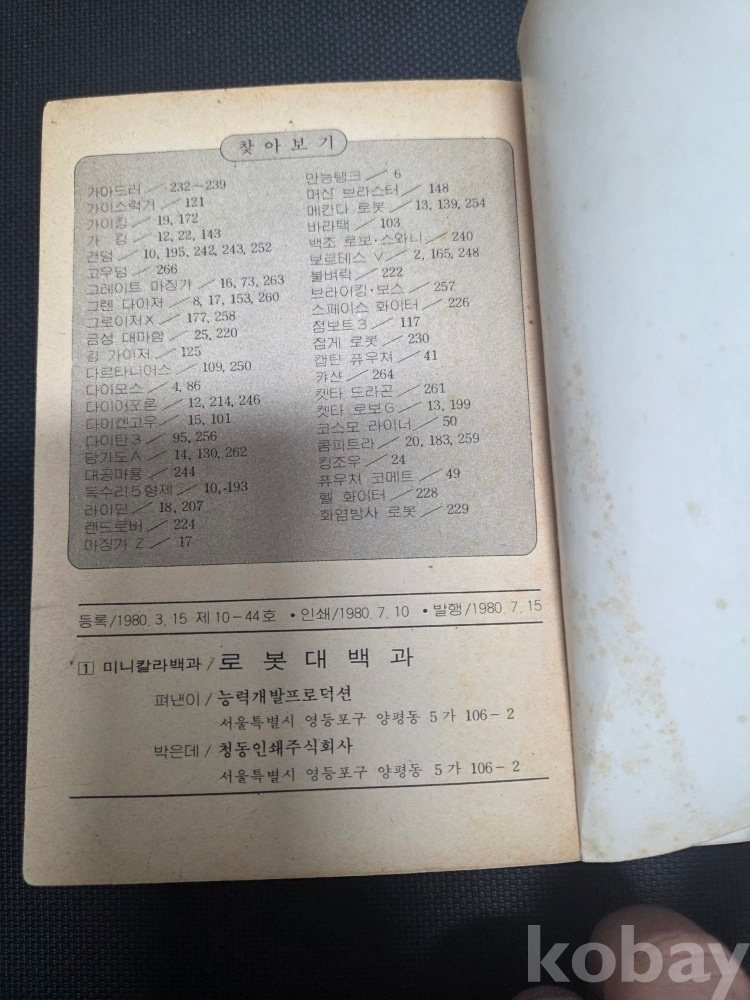 찾아보기
가아드러／232～239
가이스럭거／121
가이킹／19, 172
가 킹／12, 22, 143
건덤／10, 195, 242, 243, 252
고우덤／266
그레이트 마징가／16, 73, 263
그렌 다이저／8, 17, 153, 260
그로이저X／177, 258
금성 대마함／25, 220
깅 가이저／125
다르타니어스／109, 250
다이모스／4, 86
다이어포론／12, 214, 246
다이켄고우／15, 101
다이탄3／95, 256
당가도A／14, 130, 262
대공마룡／244
독수리5형제／10, 193
라이민／18, 207
랜드로버／224
마징가 Z／17
만능탱크／6
머신 브라스터／148
메칸다 로봇／13, 139, 254
바라택／103
백조 로보·스와니／240
보르테스 V／2, 165, 248
불벼락／222
브라이킹·보스／257
스페이스 화이터／226
점보트3／117
집게 로봇／230
캡틴 퓨우쳐／41
캬산／264
켓타 드라곤／261
켓타 로보G／13, 199
코스모 라이너／50
콤피트라／20, 183, 259
킹조우／24
퓨우쳐 코메트／49
헬 화이터／228
화염방사 로봇／229
등록/1980. 3. 15 제10－44호 •인쇄/1980. 7. 10 •발행/1980. 7. 15
1 미니칼라백과/로봇대백과
펴낸이/능력개발프로덕션
서울특별시 영등포구 양평동 5가 106－2
박은데/청동인쇄주식회사
서울특별시 영등포구 양평동 5가 106－2
kobay